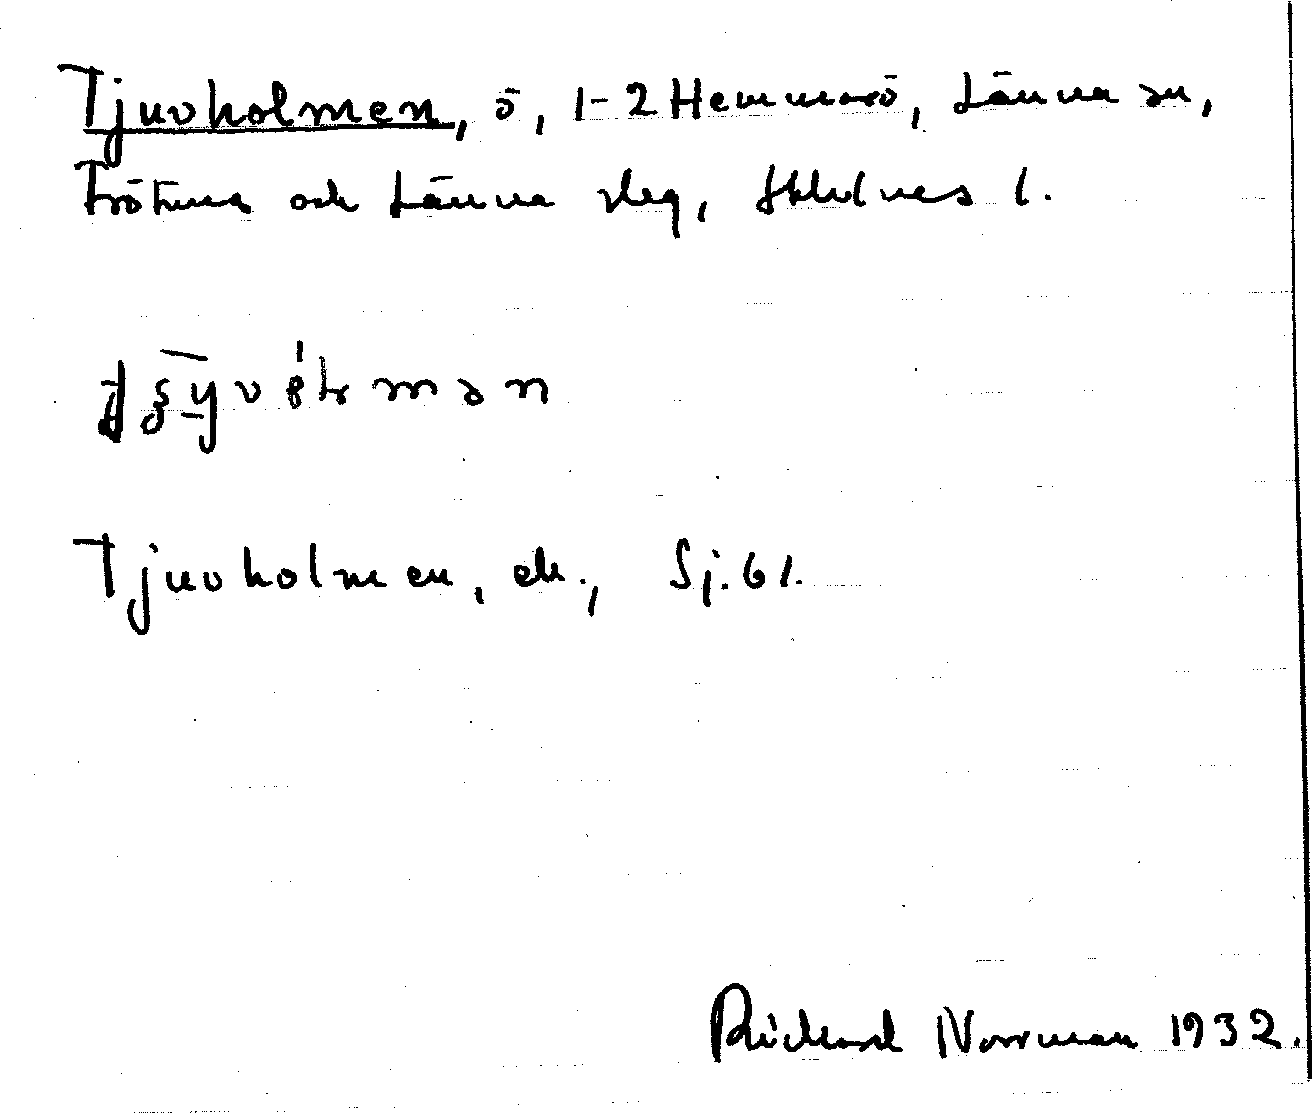 Tjuvholmen, ö, 1-2 Hemmarö, Länna sn,
Frötuna och Länna slg, Sthlms l.
Tjuvholmen, ek., Sj. 61.
Rickard Norrman 1932.